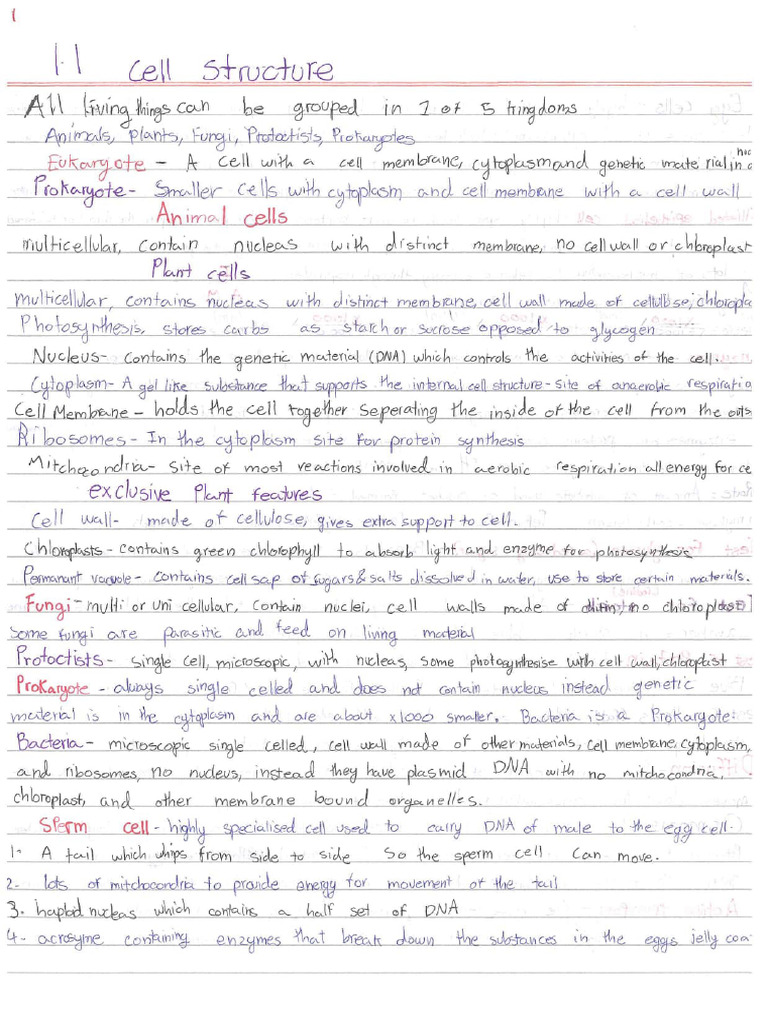 1
1.1 cell structure
All living things can be grouped in 1 of 5 kingdoms
Animals, plants, Fungi, Protoctists, Prokaryotes
Eukaryote - A cell with a cell membrane, cytoplasm and genetic material in a nuc
Prokaryote - Smaller cells with cytoplasm and cell membrane with a cell wall
Animal cells
multicellular, contain nucleas with distinct membrane, no cell wall or chloroplast
Plant cells
multicellular, contains nucleas with distinct membrane, cell wall made of cellulose, chloropla
Photosynthesis, stores carbs as starch or sucrose opposed to glycogen
Nucleus - contains the genetic material (DNA) which controls the activities of the cell.
Cytoplasm - A gel like substance that supports the internal cell structure - site of anaerobic respiratio
Cell Membrane - holds the cell together seperating the inside of the cell from the outs
Ribosomes - In the cytoplasm site for protein synthesis
Mitchocondria - site of most reactions involved in aerobic respiration all energy for ce
exclusive Plant features
Cell wall - made of cellulose, gives extra support to cell.
Chloroplasts - contains green chlorophyll to absorb light and enzyme for photosynthesis
Permanant vacuole - contains cell sap of sugars & salts dissolved in water, use to store certain materials.
Fungi - multi or uni cellular, contain nuclei, cell walls made of no chloroplast
some fungi are parasitic and feed on living material
Protoctists - single cell, microscopic, with nucleas, some photosynthesise with cell wall, chloroplast
Prokaryote - always single celled and does not contain nucleus instead genetic
material is in the cytoplasm and are about x1000 smaller. Bacteria is a Prokaryote.
Bacteria - microscopic single celled, cell wall made of other materials, cell membrane, cytoplasm,
and ribosomes, no nucleus, instead they have plasmid DNA with no mitchocondria,
chloroplast, and other membrane bound organelles.
Sperm cell - highly specialised cell used to carry DNA of male to the egg cell.
1- A tail which whips from side to side So the sperm cell can move.
2. lots of mitchocondria to provide energy for movement of the tail
3. haploid nucleas which contains a half set of DNA
4- acrosyme containing enzymes that break down the substances in the eggs jelly coa